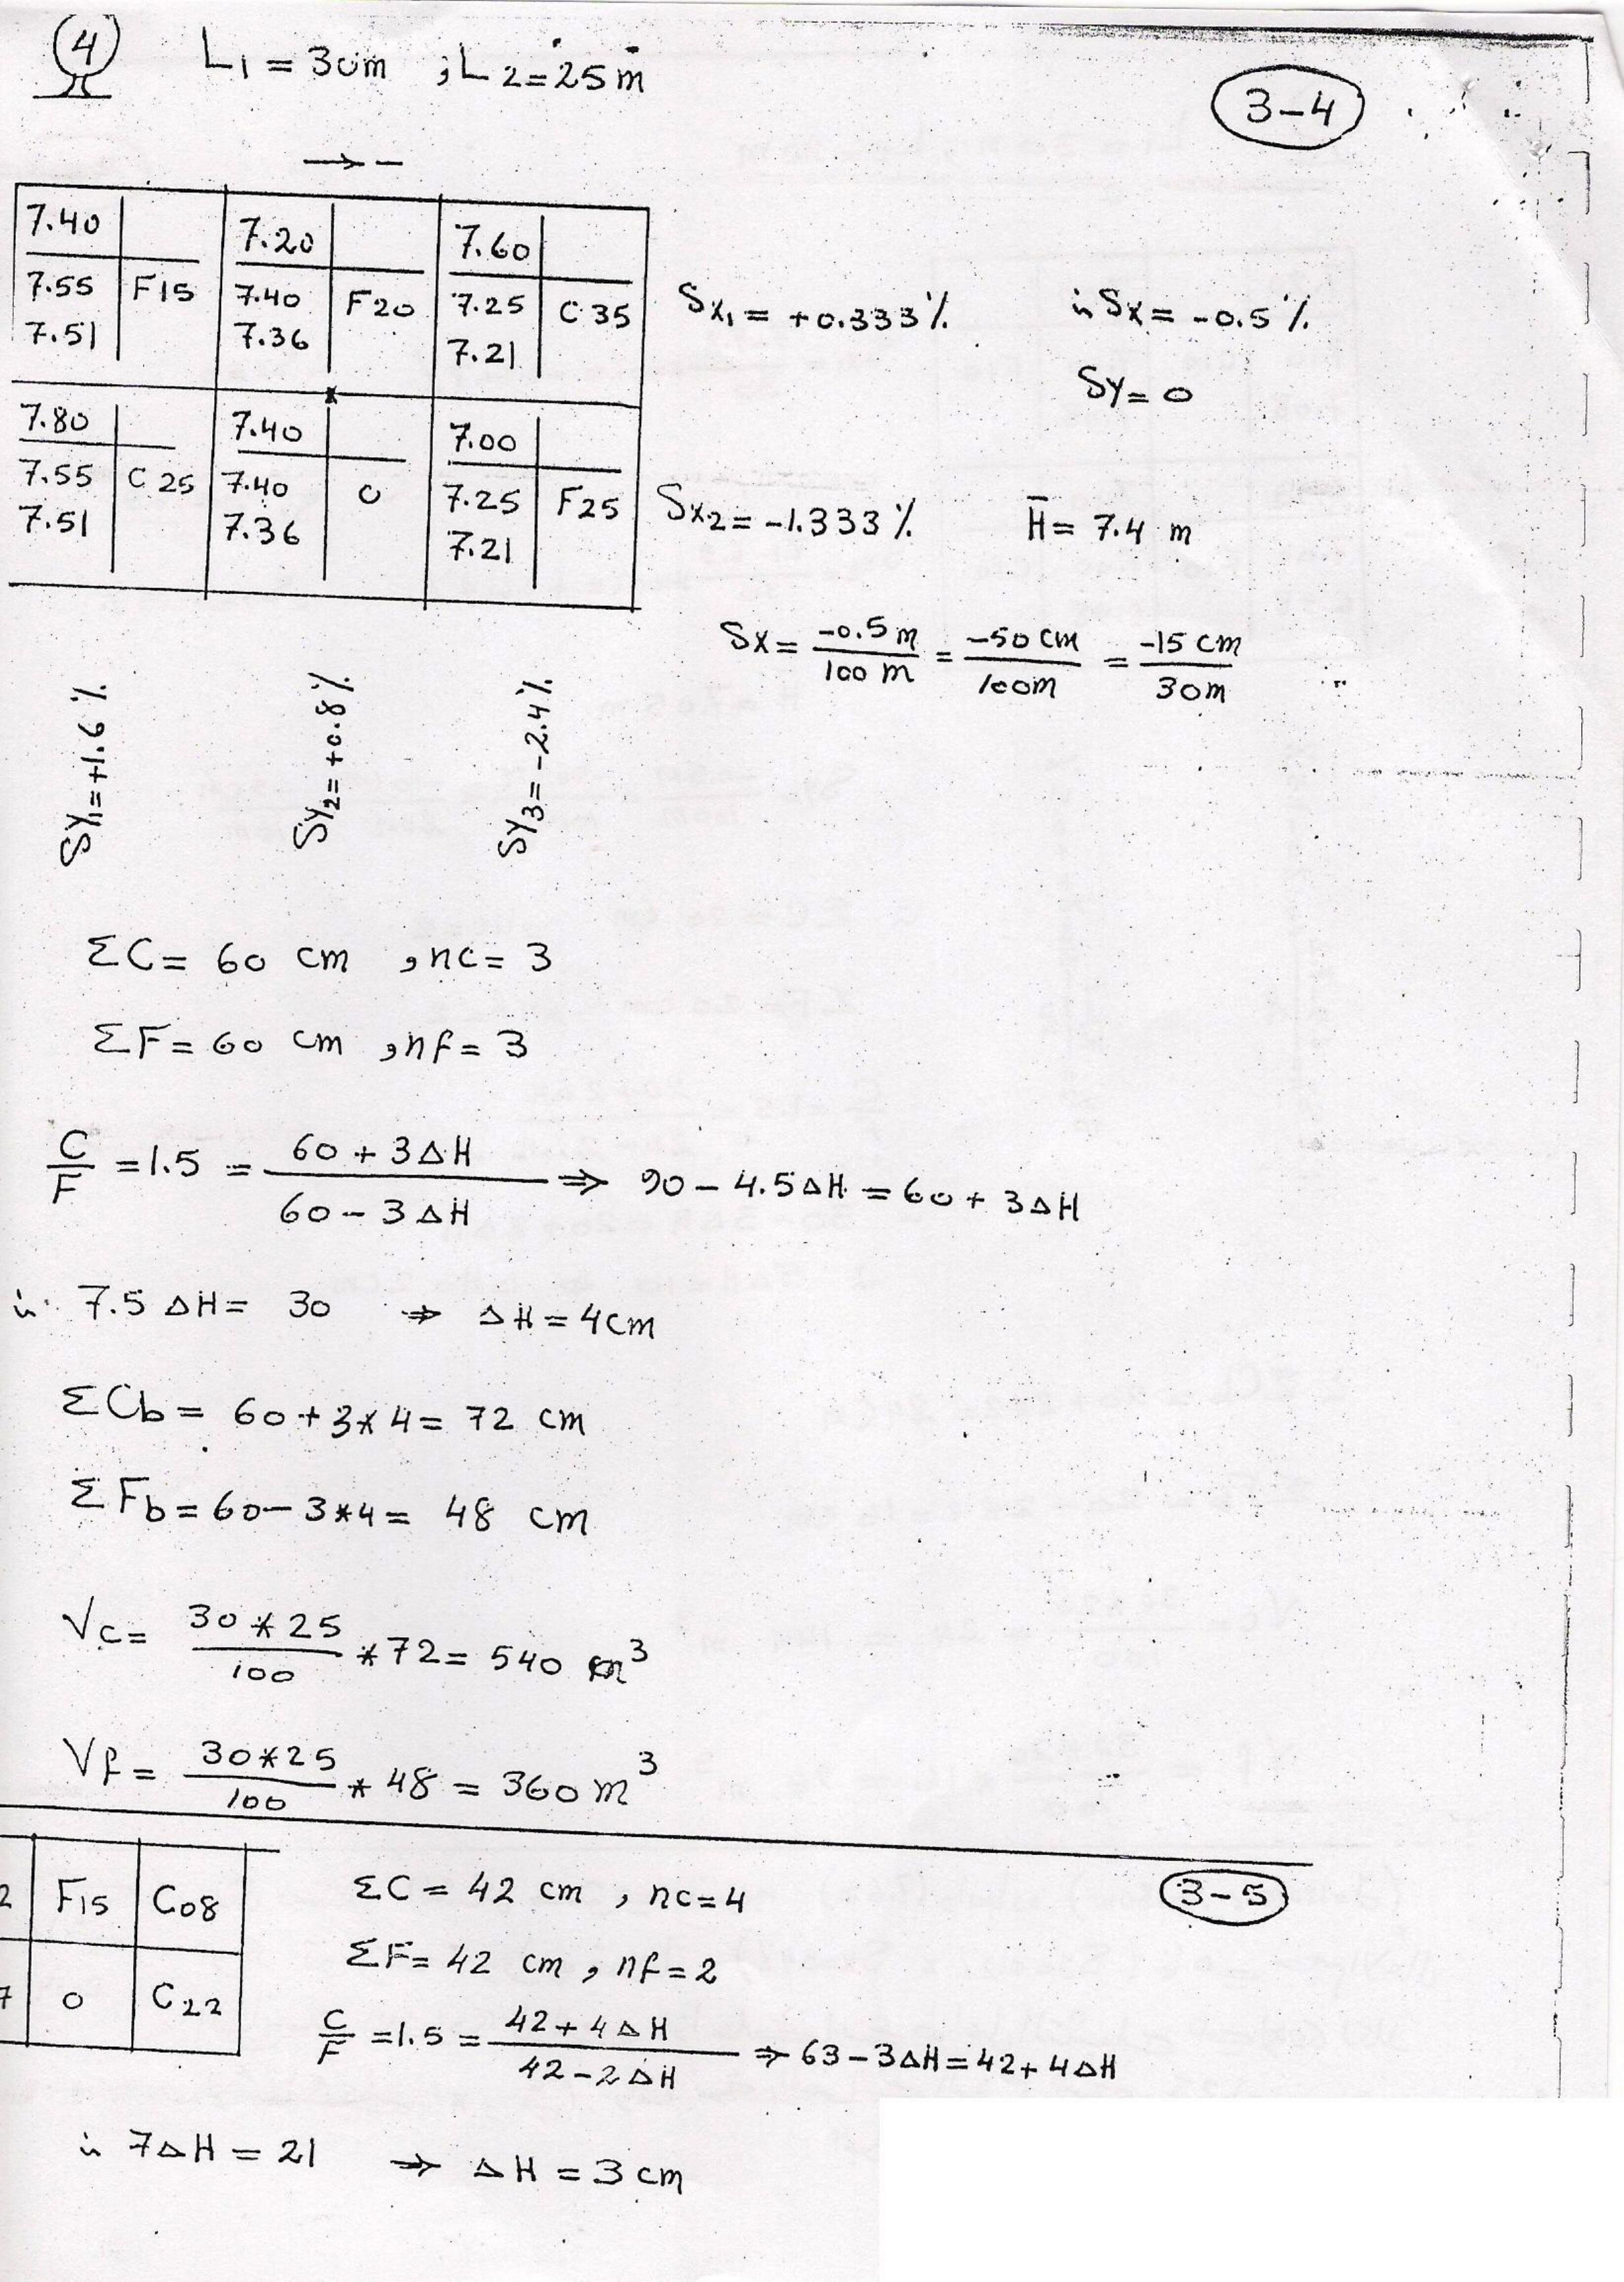 4 L1 = 30m , L2 = 25m
3-4
→ -
7.40 7.20 7.60
7.55 F15 7.40 F20 7.25 C 35
7.51 7.36 7.21
Sx1 = +0.333% ∴ Sx = -0.5%
Sy = 0
7.80 7.40 7.00
7.55 C 25 7.40 0 7.25 F25
7.51 7.36 7.21
Sx2 = -1.333% H̄ = 7.4 m
Sx = -0.5 m / 100 m = -50 cm / 100m = -15 cm / 30m
Sy1 = +1.6% Sy2 = +0.8% Sy3 = -2.4%
ΣC = 60 cm , nc = 3
ΣF = 60 cm , nf = 3
C/F = 1.5 = (60 + 3ΔH) / (60 - 3ΔH) ⇒ 90 - 4.5ΔH = 60 + 3ΔH
∴ 7.5 ΔH = 30 ⇒ ΔH = 4cm
ΣCb = 60 + 3*4 = 72 cm
ΣFb = 60 - 3*4 = 48 cm
Vc = 30*25 / 100 * 72 = 540 m³
Vf = 30*25 / 100 * 48 = 360 m³
3-5
2 F15 C08
7 0 C22
ΣC = 42 cm , nc = 4
ΣF = 42 cm , nf = 2
C/F = 1.5 = (42 + 4ΔH) / (42 - 2ΔH) ⇒ 63 - 3ΔH = 42 + 4ΔH
∴ 7ΔH = 21 ⇒ ΔH = 3 cm